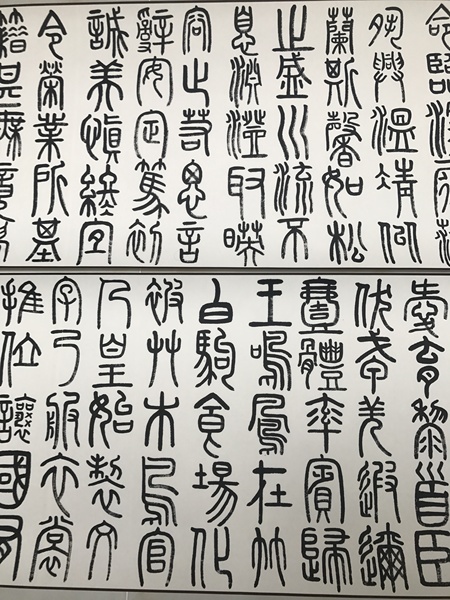 命臨深履薄
夙興溫凊似
蘭斯馨如松
之盛川流不
息淵澄取暎
容止若思言
辭安定篤初
誠美慎終宜
令榮業所基
籍甚無竟
愛育黎首臣
伏戎羌遐邇
壹體率賓歸
王鳴鳳在竹
白駒食場化
被艸木鳥官
人皇始製文
字乃服衣裳
推位讓國有